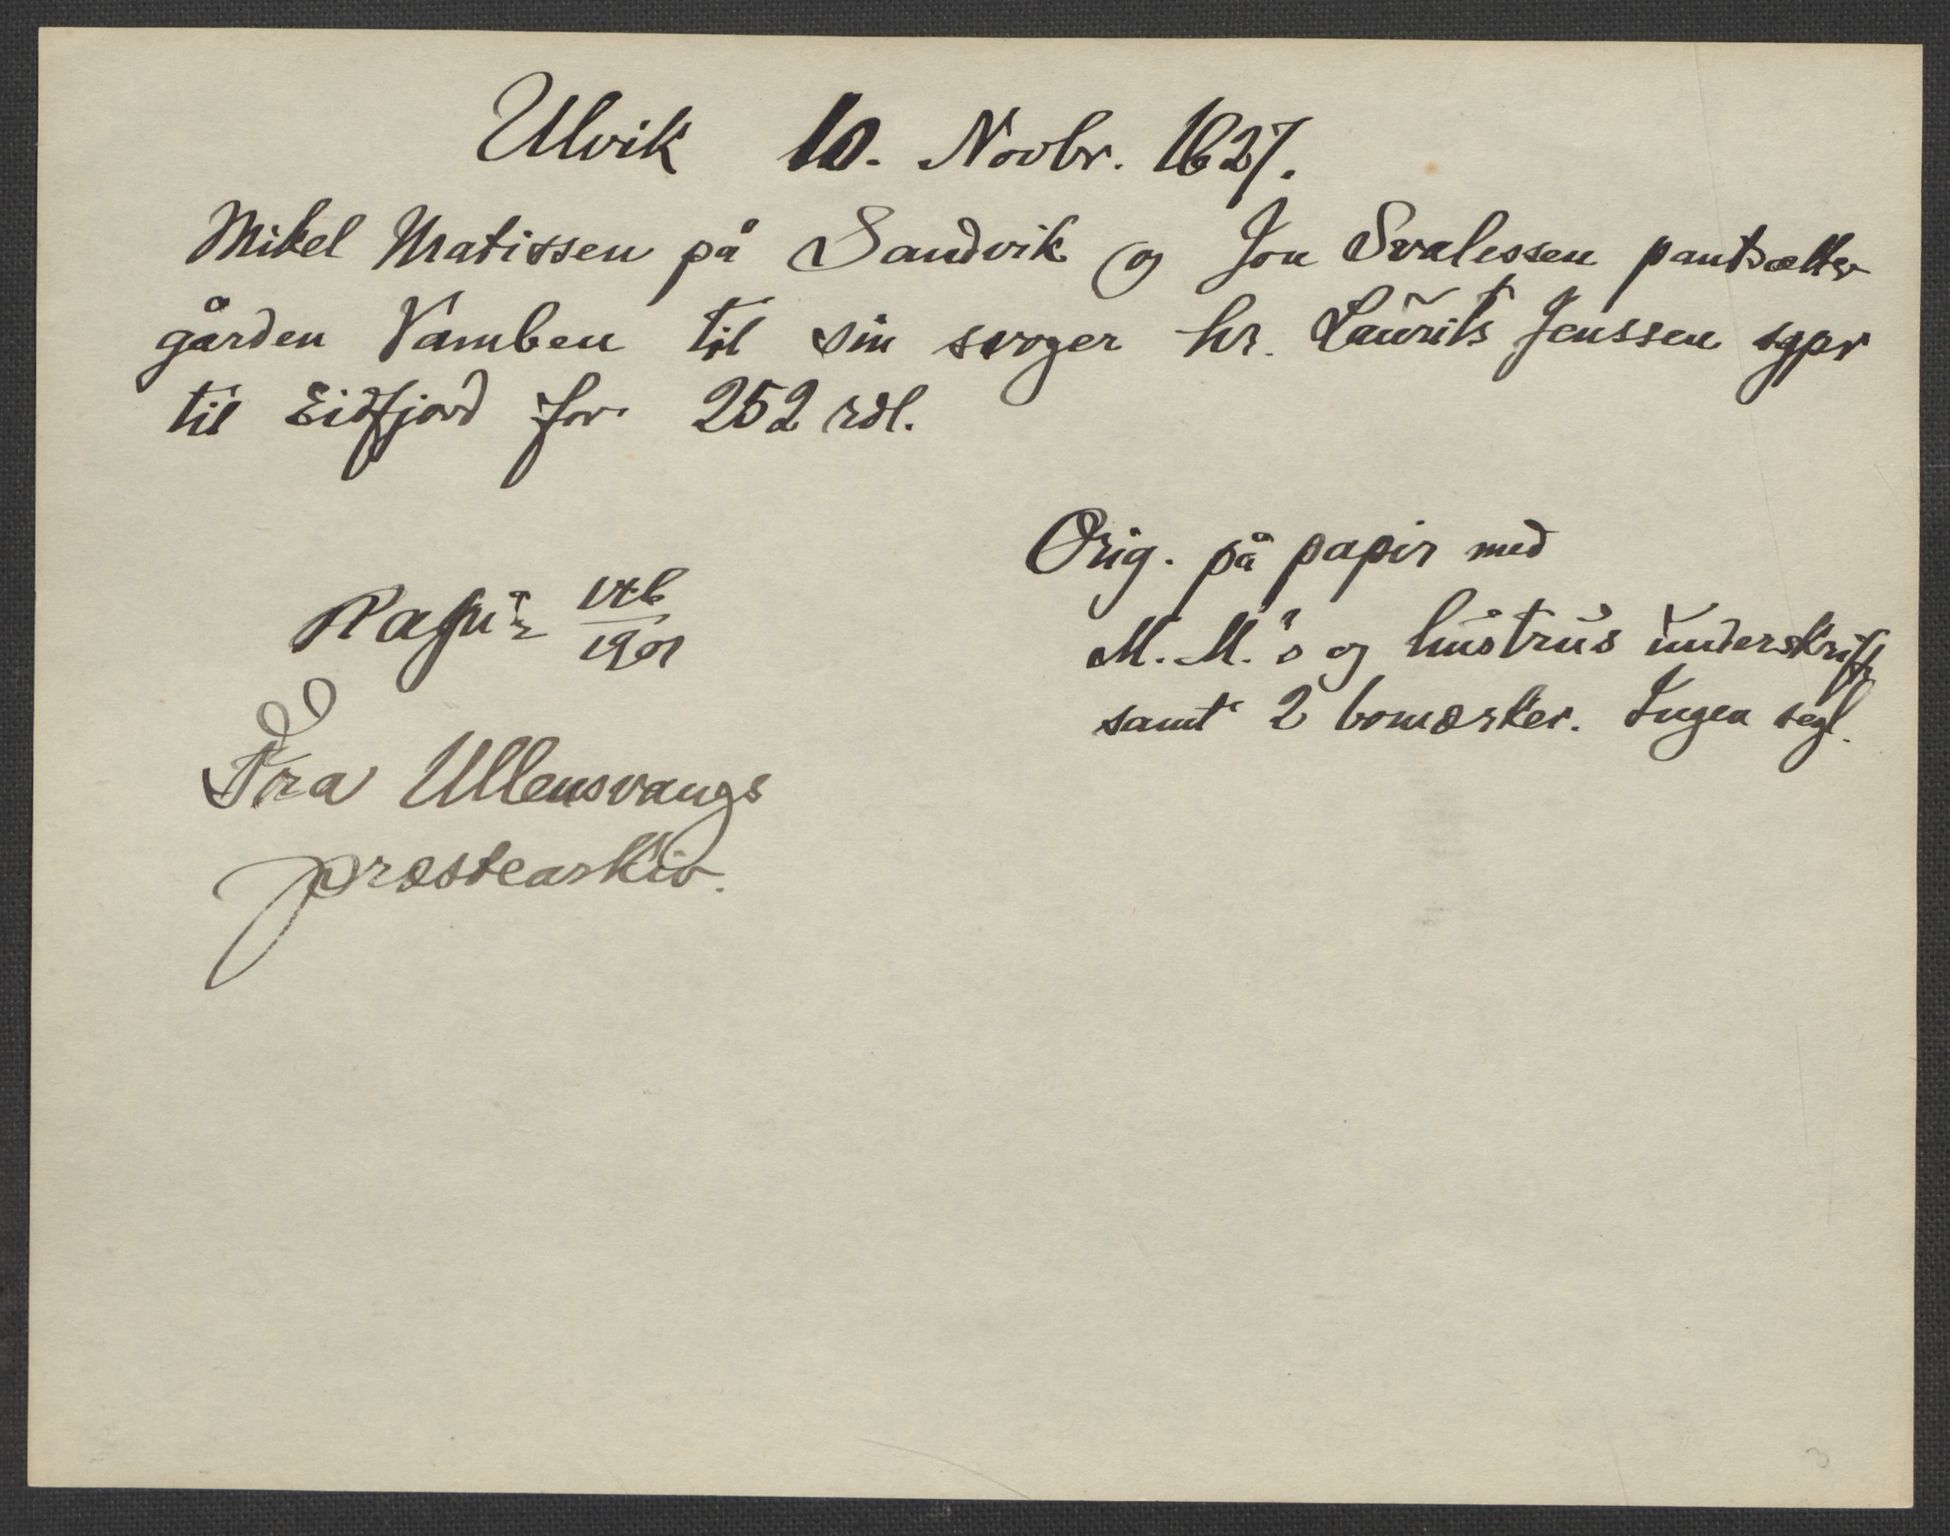 Ulvik 10. Novbr. 1627.
Mikel Matissen på Sandvik og Jon Svalessen pantsætter
gården Vamben til sin svoger hr. Laurits Jenssen sgpr
til Eidfjord for 252 rdl.
Orig. på papir med
M. M.'s og hustrus underskrift
samt 2 bomærker. Ingen segl.
Papir
1901
Fra Ullensvangs
præstearkiv.
3